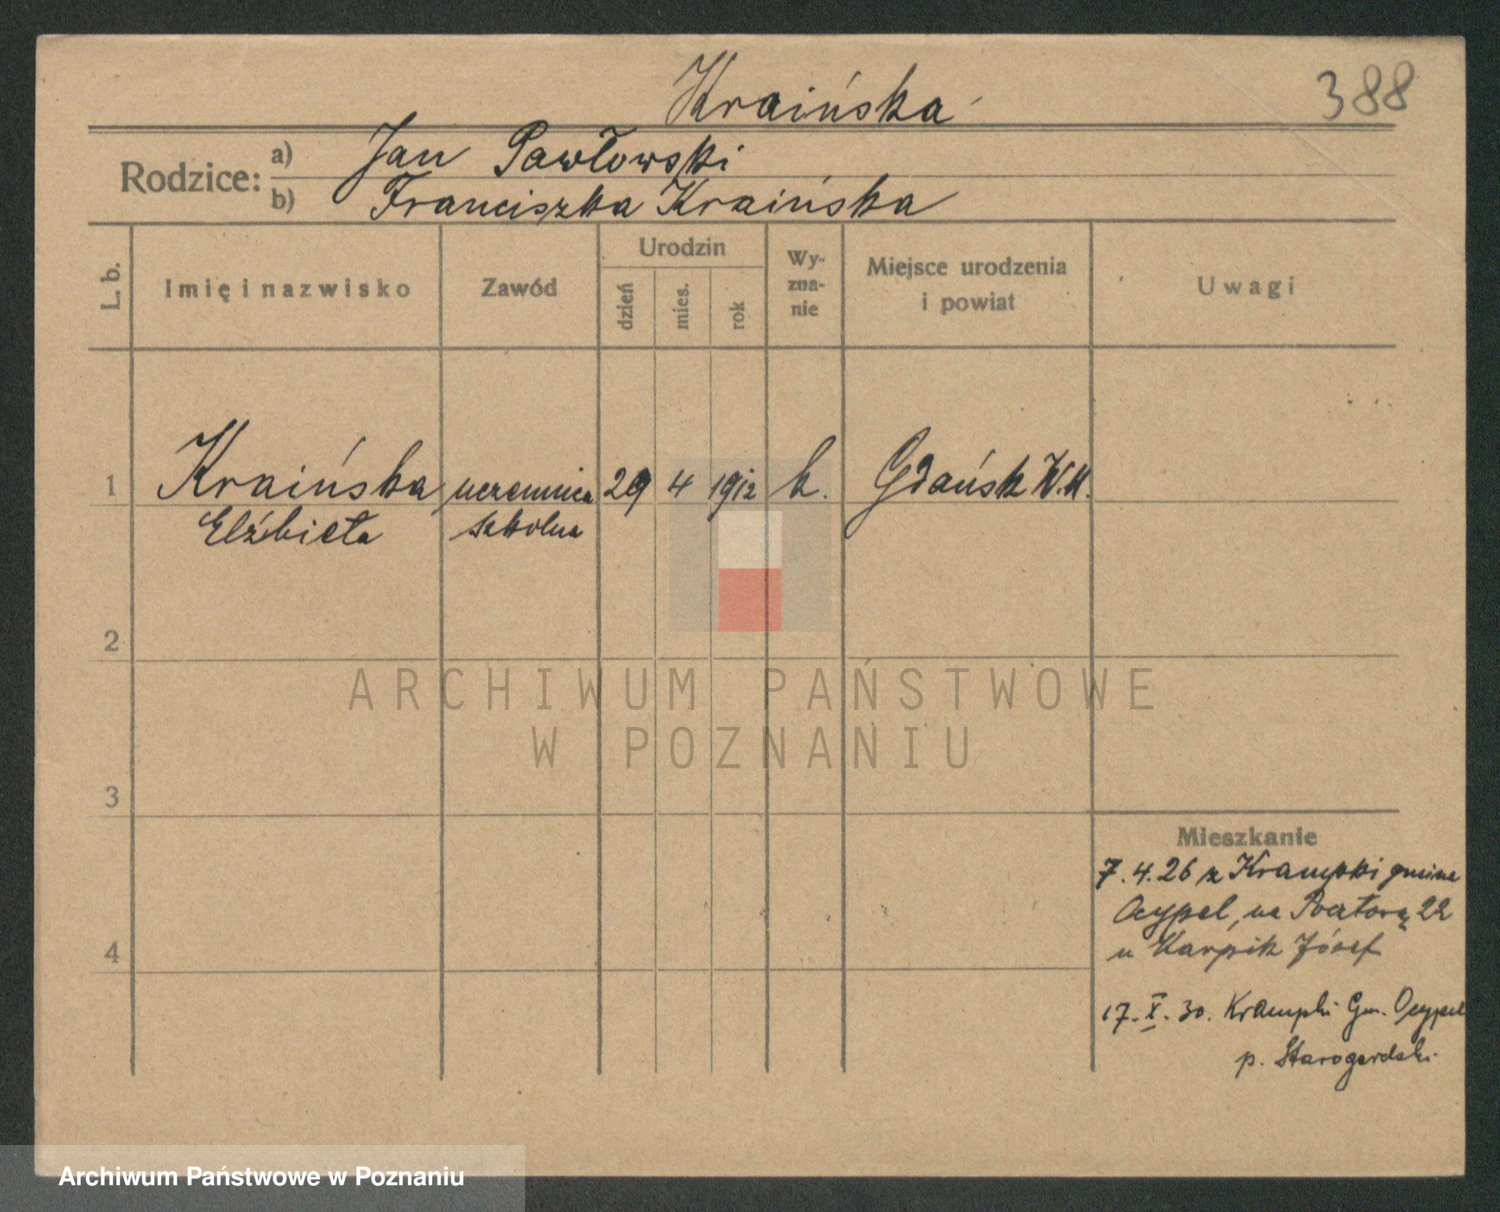 Kraińska
388
Rodzice:
a) Jan Pawłowski
b) Franciszka Kraińska
L. b.
Imię i nazwisko
Zawód
Urodzin
dzień
mies.
rok
Wy-
zna-
nie
Miejsce urodzenia
i powiat
Uwagi
1 Kraińska uczennica 29 4 1912 k. Gdańsk W.M.
Elżbieta szkolna
2
ARCHIWUM PAŃSTWOWE
W POZNANIU
3
Mieszkanie
7.4.26 z Krampki gmina
Ocypel, na 22
u Karpik Józef
4
17. X. 30. Krampki Gm. Ocypel
p. Starogardzki.
Archiwum Państwowe w Poznaniu